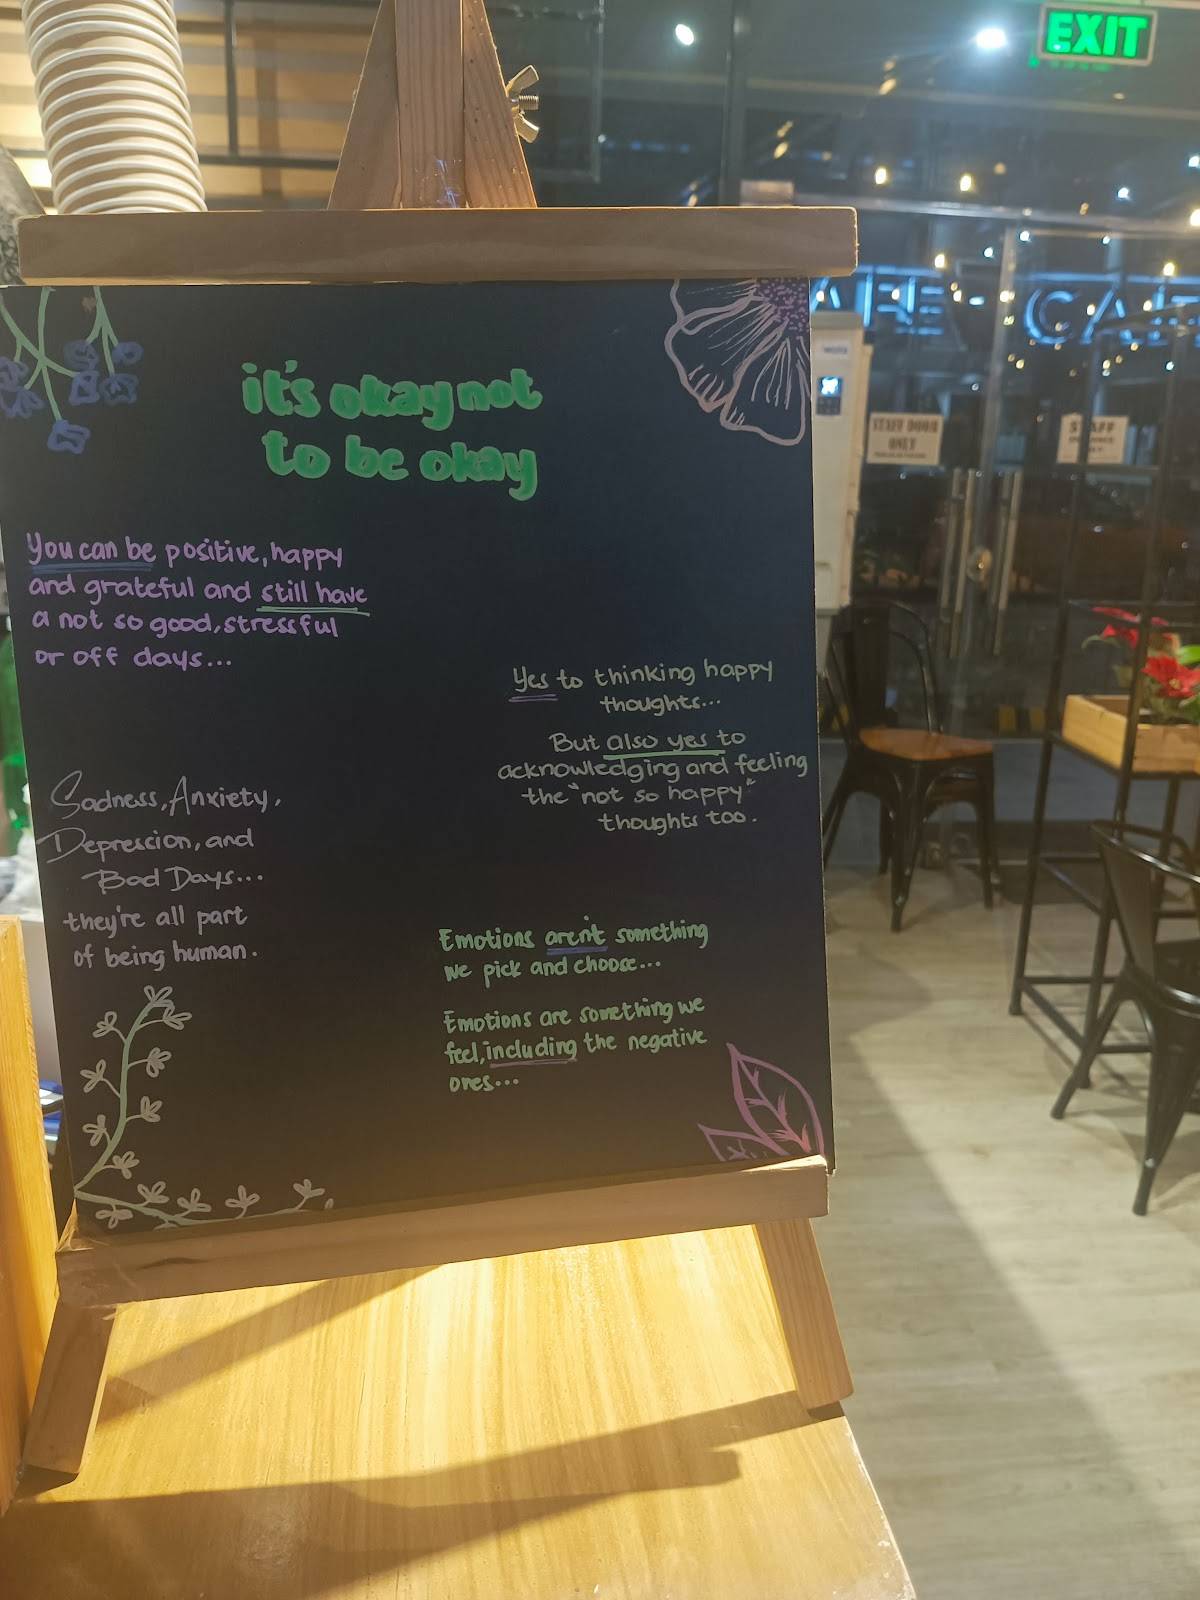 EXIT
CAF
STAFF DOOR
ONLY
STAFF
it's okay not
to be okay
You can be positive, happy
and grateful and still have
a not so good, stressful
or off days...
Yes to thinking happy
thoughts...
But also yes to
acknowledging and feeling
the "not so happy"
thoughts too.
Sadness, Anxiety,
Depression, and
Bad Days...
they're all part
of being human.
Emotions aren't something
we pick and choose...
Emotions are something we
feel, including the negative
ones...